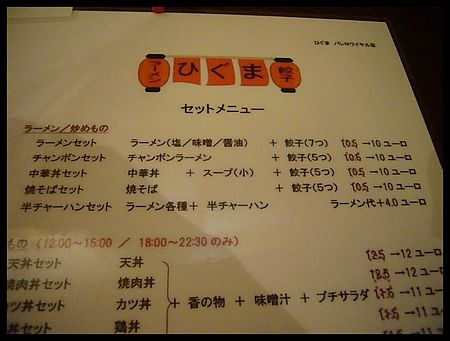 ひぐま パレロワイヤル店
ラーメン ひぐま 餃子
セットメニュー
ラーメン／炒めもの
ラーメンセット ラーメン(塩／味噌／醤油) + 餃子(7つ) →10 ユーロ
チャンポンセット チャンポンラーメン + 餃子(5つ) →10 ユーロ
中華丼セット 中華丼 + スープ(小) + 餃子(5つ) →10 ユーロ
焼そばセット 焼そば + 餃子(5つ) →10 ユーロ
半チャーハンセット ラーメン各種＋ 半チャーハン ラーメン代＋4.0 ユーロ
もの (12:00～15:00 / 18:00～22:30 のみ)
天丼セット 天丼 →12 ユーロ
焼肉丼セット 焼肉丼 →12 ユーロ
カツ丼セット カツ丼 + 香の物 + 味噌汁 + プチサラダ →11 ユー
丼セット 鶏丼 →11 ユ